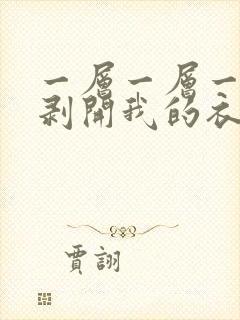 一層一層一
剥開我的衣
賈詡